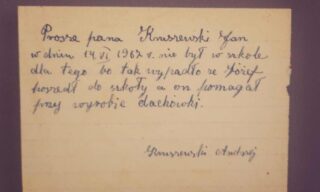 Prosze pana Kruszewski Jan
w dniu 14 VI 1967 r. nie był w szkole
dla tego bo tak wypadło że Józef
poszedł do szkoły a on pomagał
przy wyrobie dachówki.
Kruszewski Andrzej